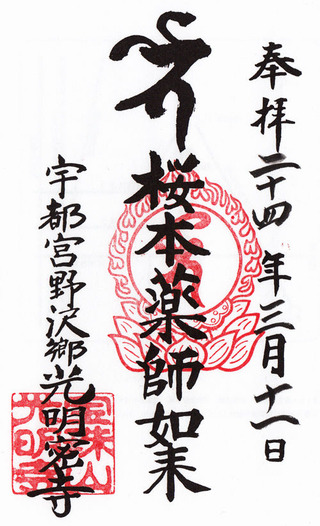 奉拝 二十四年三月十一日
桜本薬師如来
宇都宮野沢郷光明密寺